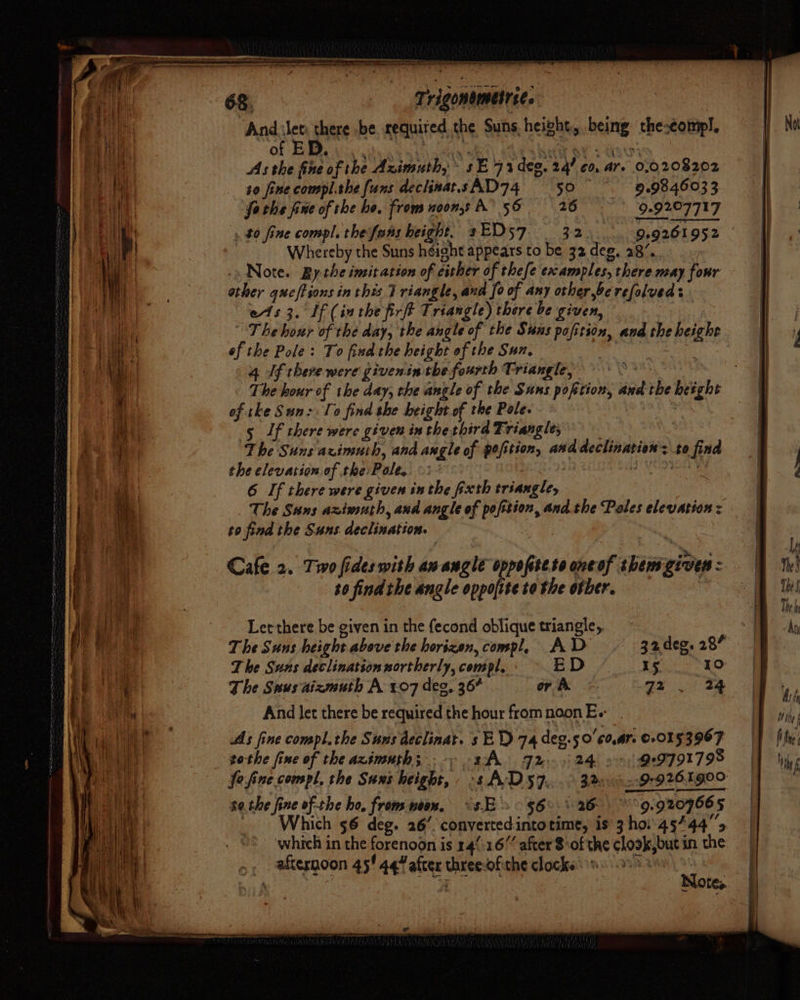 68. Trigonometrie.
And let there be required the Suns height, being the compl.
of ED.
As the sine of the Azimuth, s E 73 deg. 24' co. ar. 0.0208202
to sine compl. the suns declinat. s AD 74 50 9.9846033
so the sine of the ho. from noon, s A 56 26 9.9207717
to sine compl. the suns height. s ED 57 32 9.9261952
Whereby the Suns height appears to be 32 deg. 28'.
Note. By the imitation of either of these examples, there may four
other questions in this Triangle, and so of any other, be resolved:
As 3. If (in the first Triangle) there be given,
The hour of the day, the angle of the Suns position, and the height
of the Pole: To find the height of the Sun.
4 If there were given in the fourth Triangle,
The hour of the day, the angle of the Suns position, and the height
of the Sun: To find the height of the Pole.
5 If there were given in the third Triangle,
The Suns azimuth, and angle of position, and declination: to find
the elevation of the Pole.
6 If there were given in the sixth triangle,
The Suns azimuth, and angle of position, and the Poles elevation:
to find the Suns declination.
Case 2. Two sides with an angle opposite to one of them given:
to find the angle opposite to the other.
Let there be given in the second oblique triangle,
The Suns height above the horizon, compl. AD 32 deg. 28'
The Suns declination northerly, compl. ED 15 10
The Suns aizmuth A 107 deg. 36' or A 72 . 24
And let there be required the hour from noon E.
As sine compl. the Suns declinat. s ED 74 deg. 50' co. ar. 0.0153967
to the sine of the azimuth; s A 72 24 9.9791798
so sine compl. the Suns height, s AD 57. 32 9.9261900
to the sine of the ho. from noon. s E 56 26 9.9209665
Which 56 deg. 26'. converted into time, is 3 ho. 45' 44'',
which in the forenoon is 14' 16'' after 8 of the clock, but in the
afternoon 45' 44'' after three of the clock.
Note,